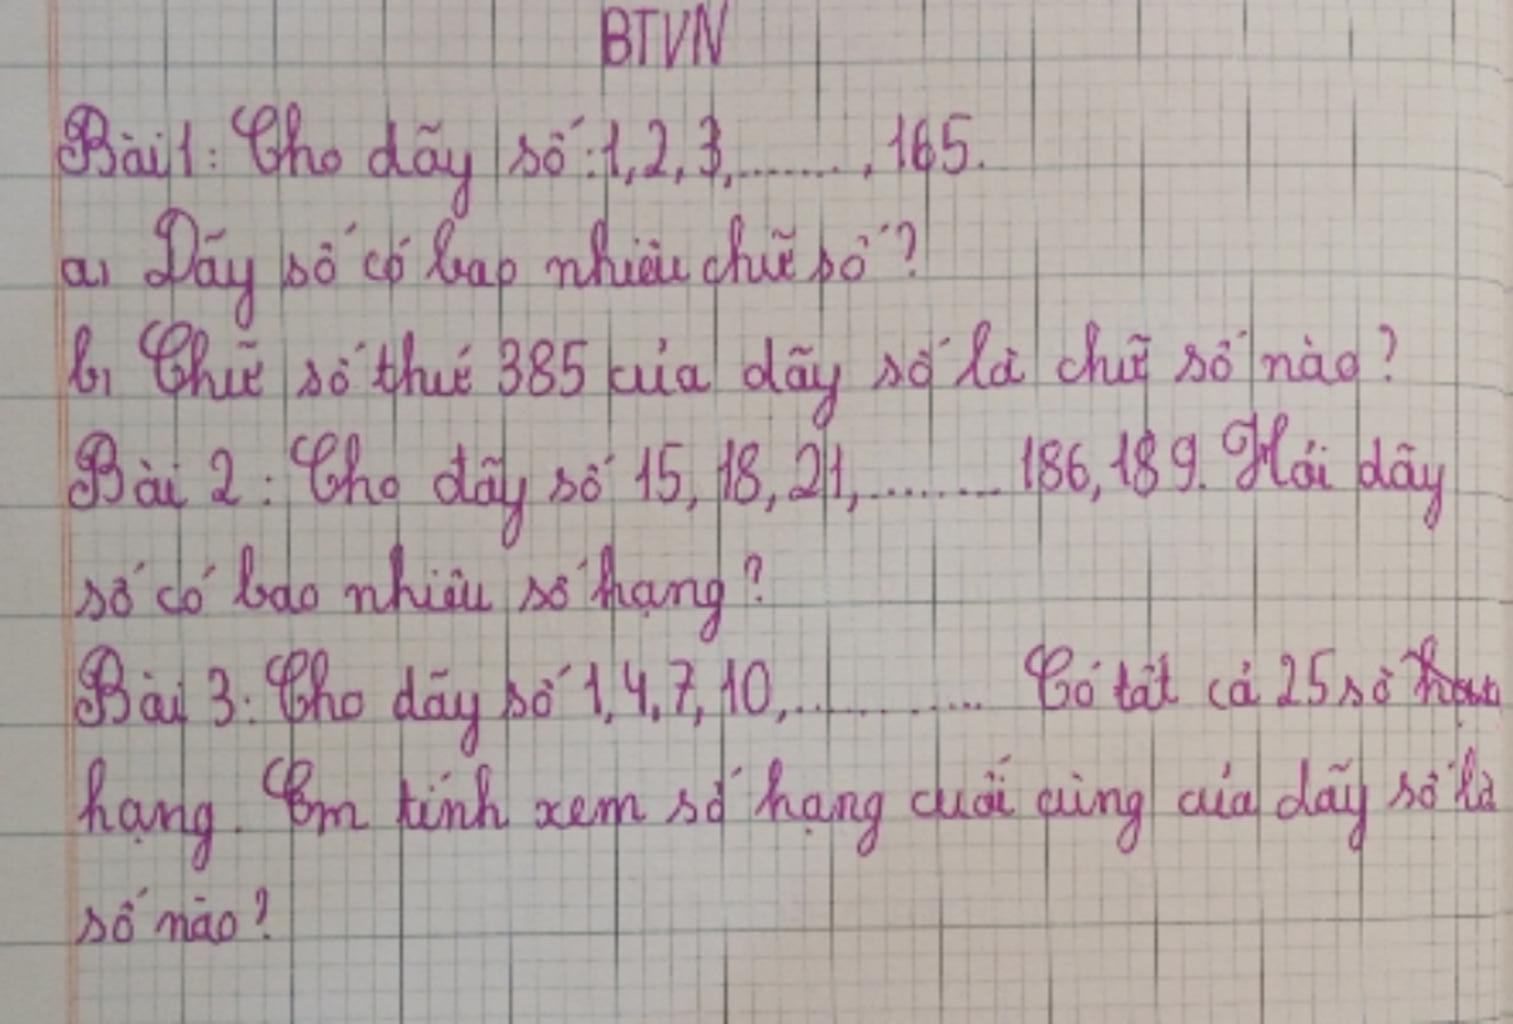 BTVN
Bài 1: Cho dãy số: 1, 2, 3, ........, 165.
a, Dãy số có bao nhiêu chữ số?
b, Chữ số thứ 385 của dãy số là chữ số nào?
Bài 2: Cho dãy số 15, 18, 21, ........ 186, 189. Hỏi dãy
số có bao nhiêu số hạng?
Bài 3: Cho dãy số 1, 4, 7, 10, ............ Có tất cả 25 số
hạng. Em tính xem số hạng cuối cùng của dãy số là
số nào?